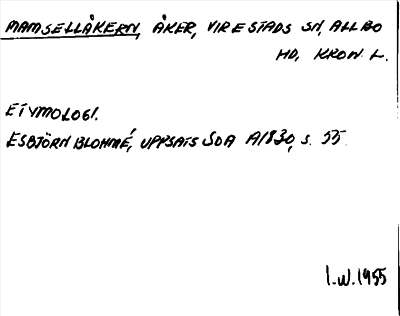 MAMSELLÅKERN, ÅKER, VIRESTADS SN, ALLBO
HD, KRON. L.
ETYMOLOGI.
ESBJÖRN BLOHMÉ, UPPSATS SOA A1830, S. 55.
I.W. 1955